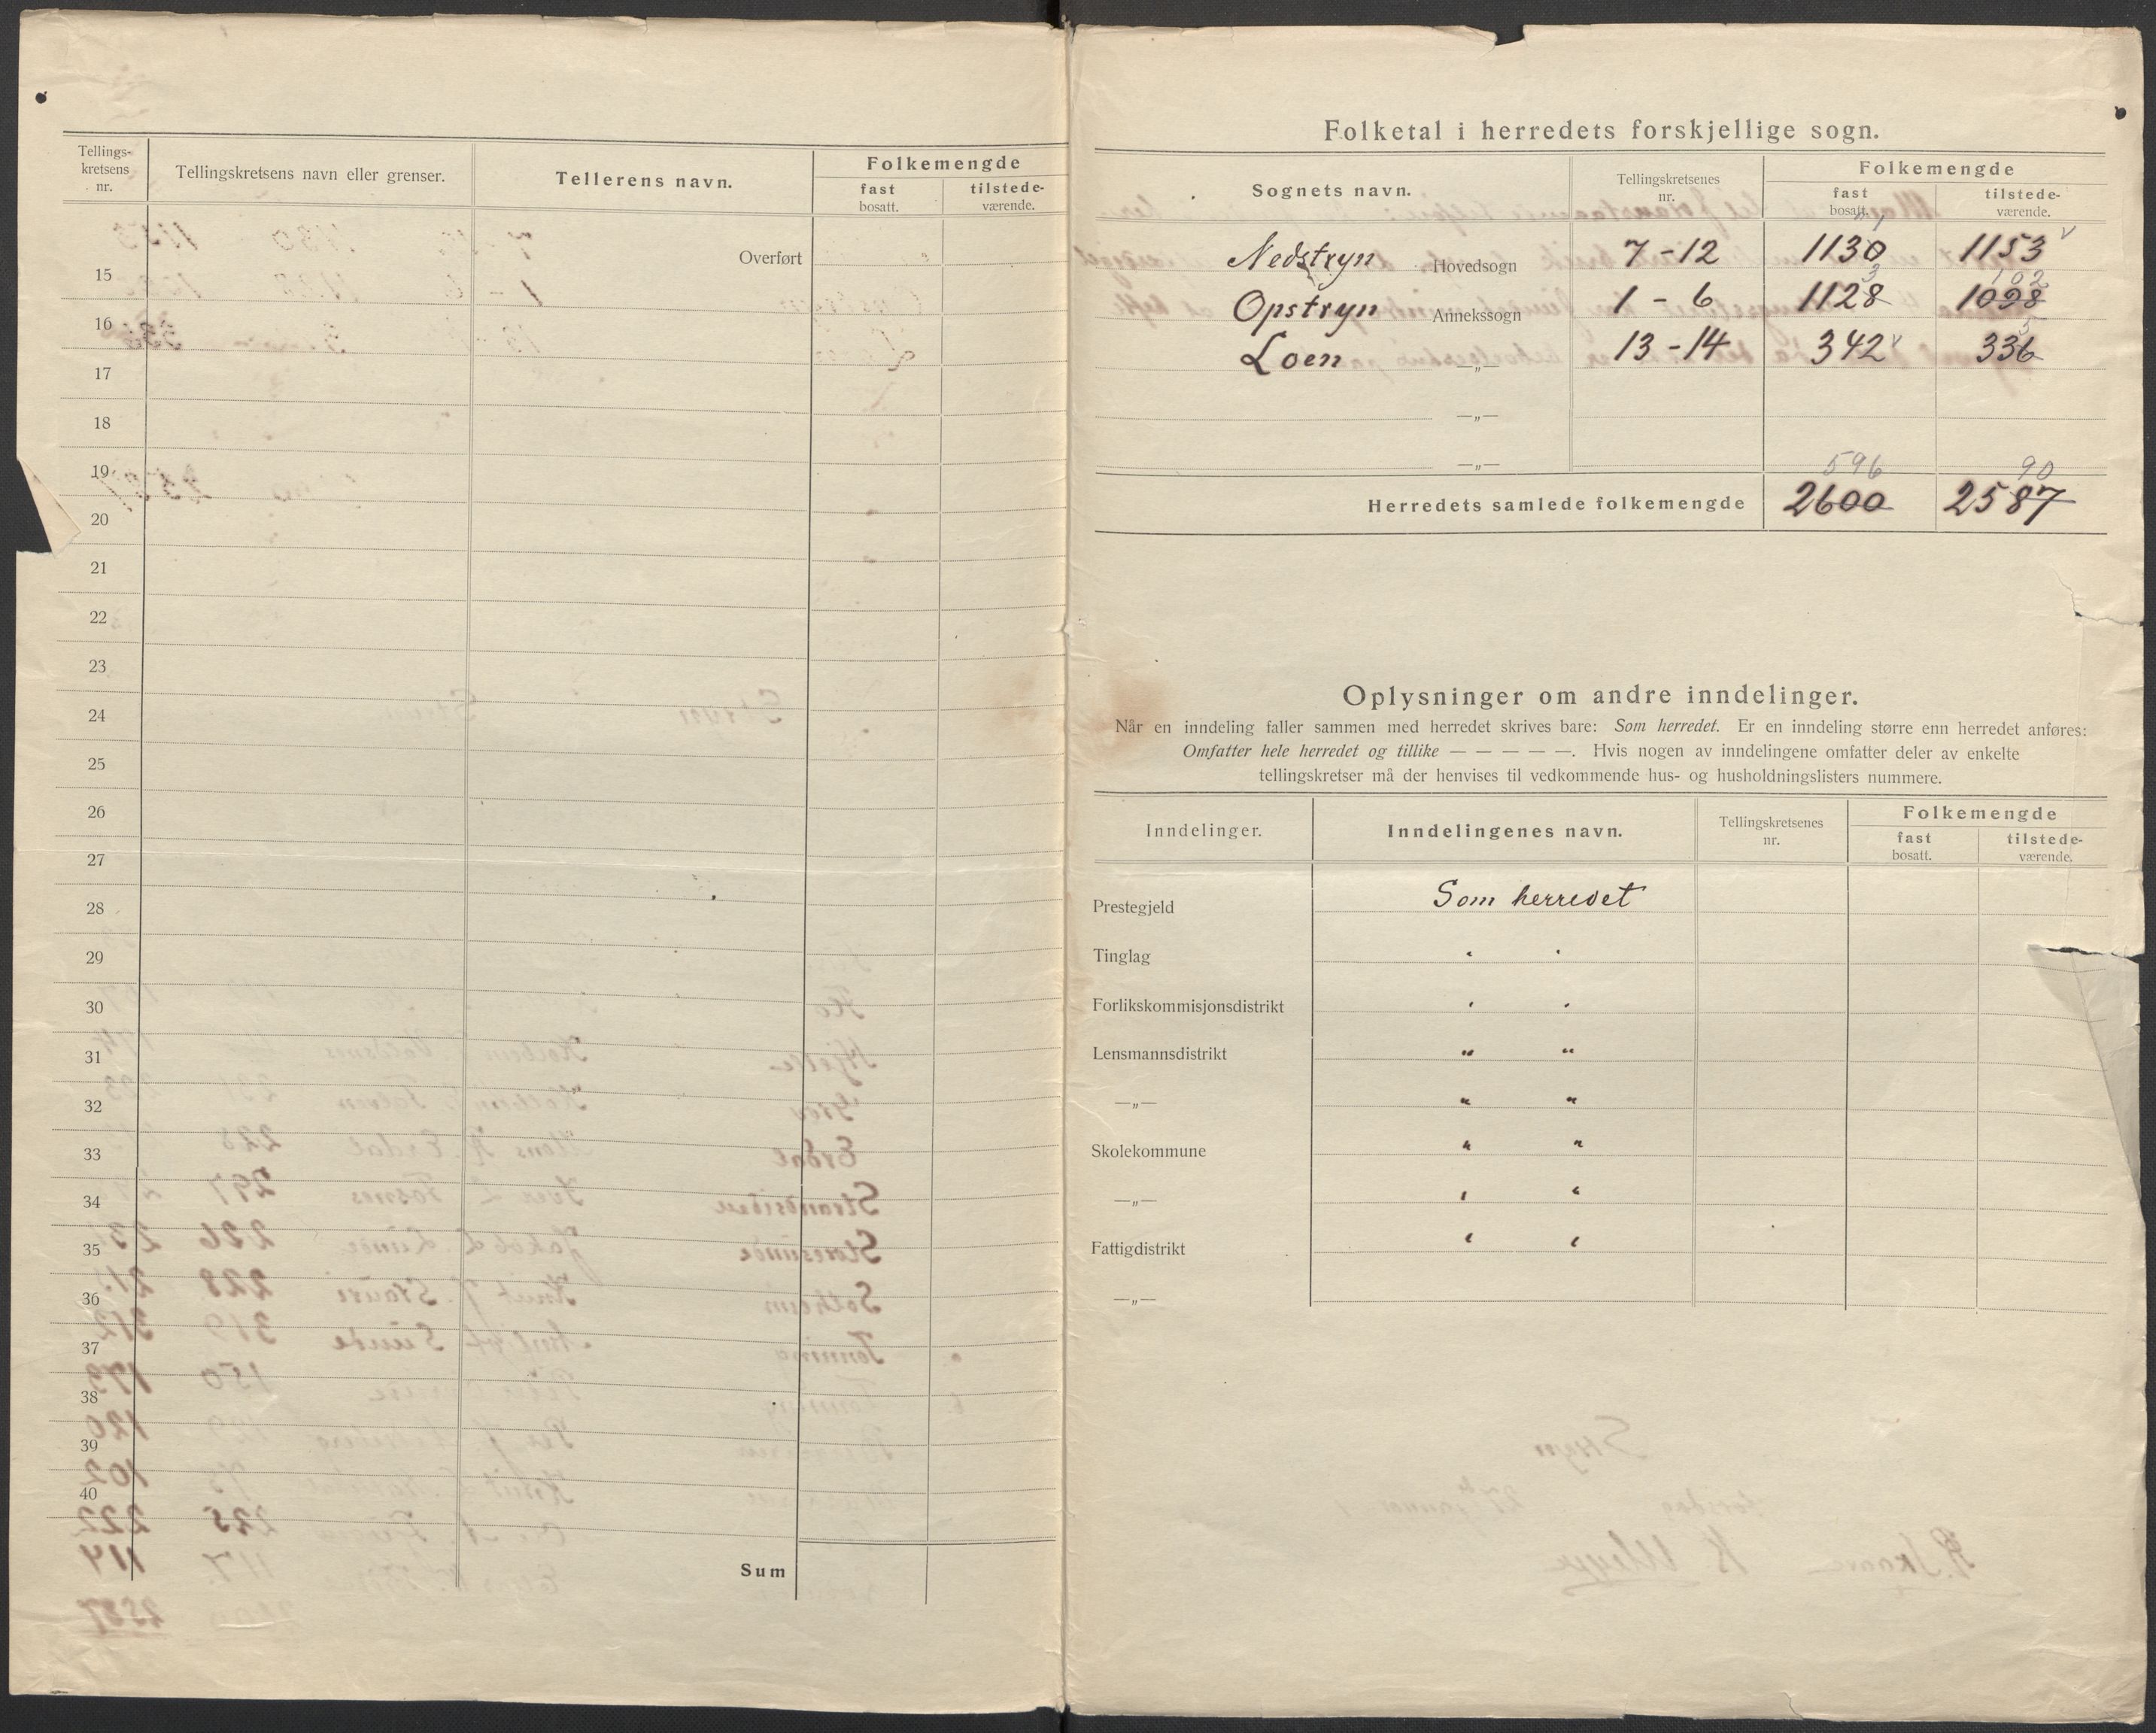 Tellings-
kretsens
nr.
Tellingskretsens navn eller grenser.
Tellerens navn.
Folkemengde
fast
bosatt.
tilstede-
værende.
Overført
15
16
17
18
19
20
21
22
23
24
25
26
27
28
29
30
31
32
33
34
35
36
37
38
39
40
Sum
Folketal i herredets forskjellige sogn.
Sognets navn.
Tellingskretsenes
nr.
Folkemengde
fast
bosatt.
tilstede-
værende.
Nedstryn Hovedsogn 7-12 1130 1153
Opstryn Annekssogn 1-6 1128 1098
Loen —„— 13-14 342 336
—„—
—„—
596 90
Herredets samlede folkemengde 2600 2587
Oplysninger om andre inndelinger.
Når en inndeling faller sammen med herredet skrives bare: Som herredet. Er en inndeling større enn herredet anføres:
Omfatter hele herredet og tillike — — — — —. Hvis nogen av inndelingene omfatter deler av enkelte
tellingskretser må der henvises til vedkommende hus- og husholdningslisters nummere.
Inndelinger.
Inndelingenes navn.
Tellingskretsenes
nr.
Folkemengde
fast
bosatt.
tilstede-
værende.
Prestegjeld Som herredet
Tinglag " "
Forlikskommisjonsdistrikt " "
Lensmannsdistrikt " "
—„— " "
Skolekommune " "
—„— " "
Fattigdistrikt " "
—„—